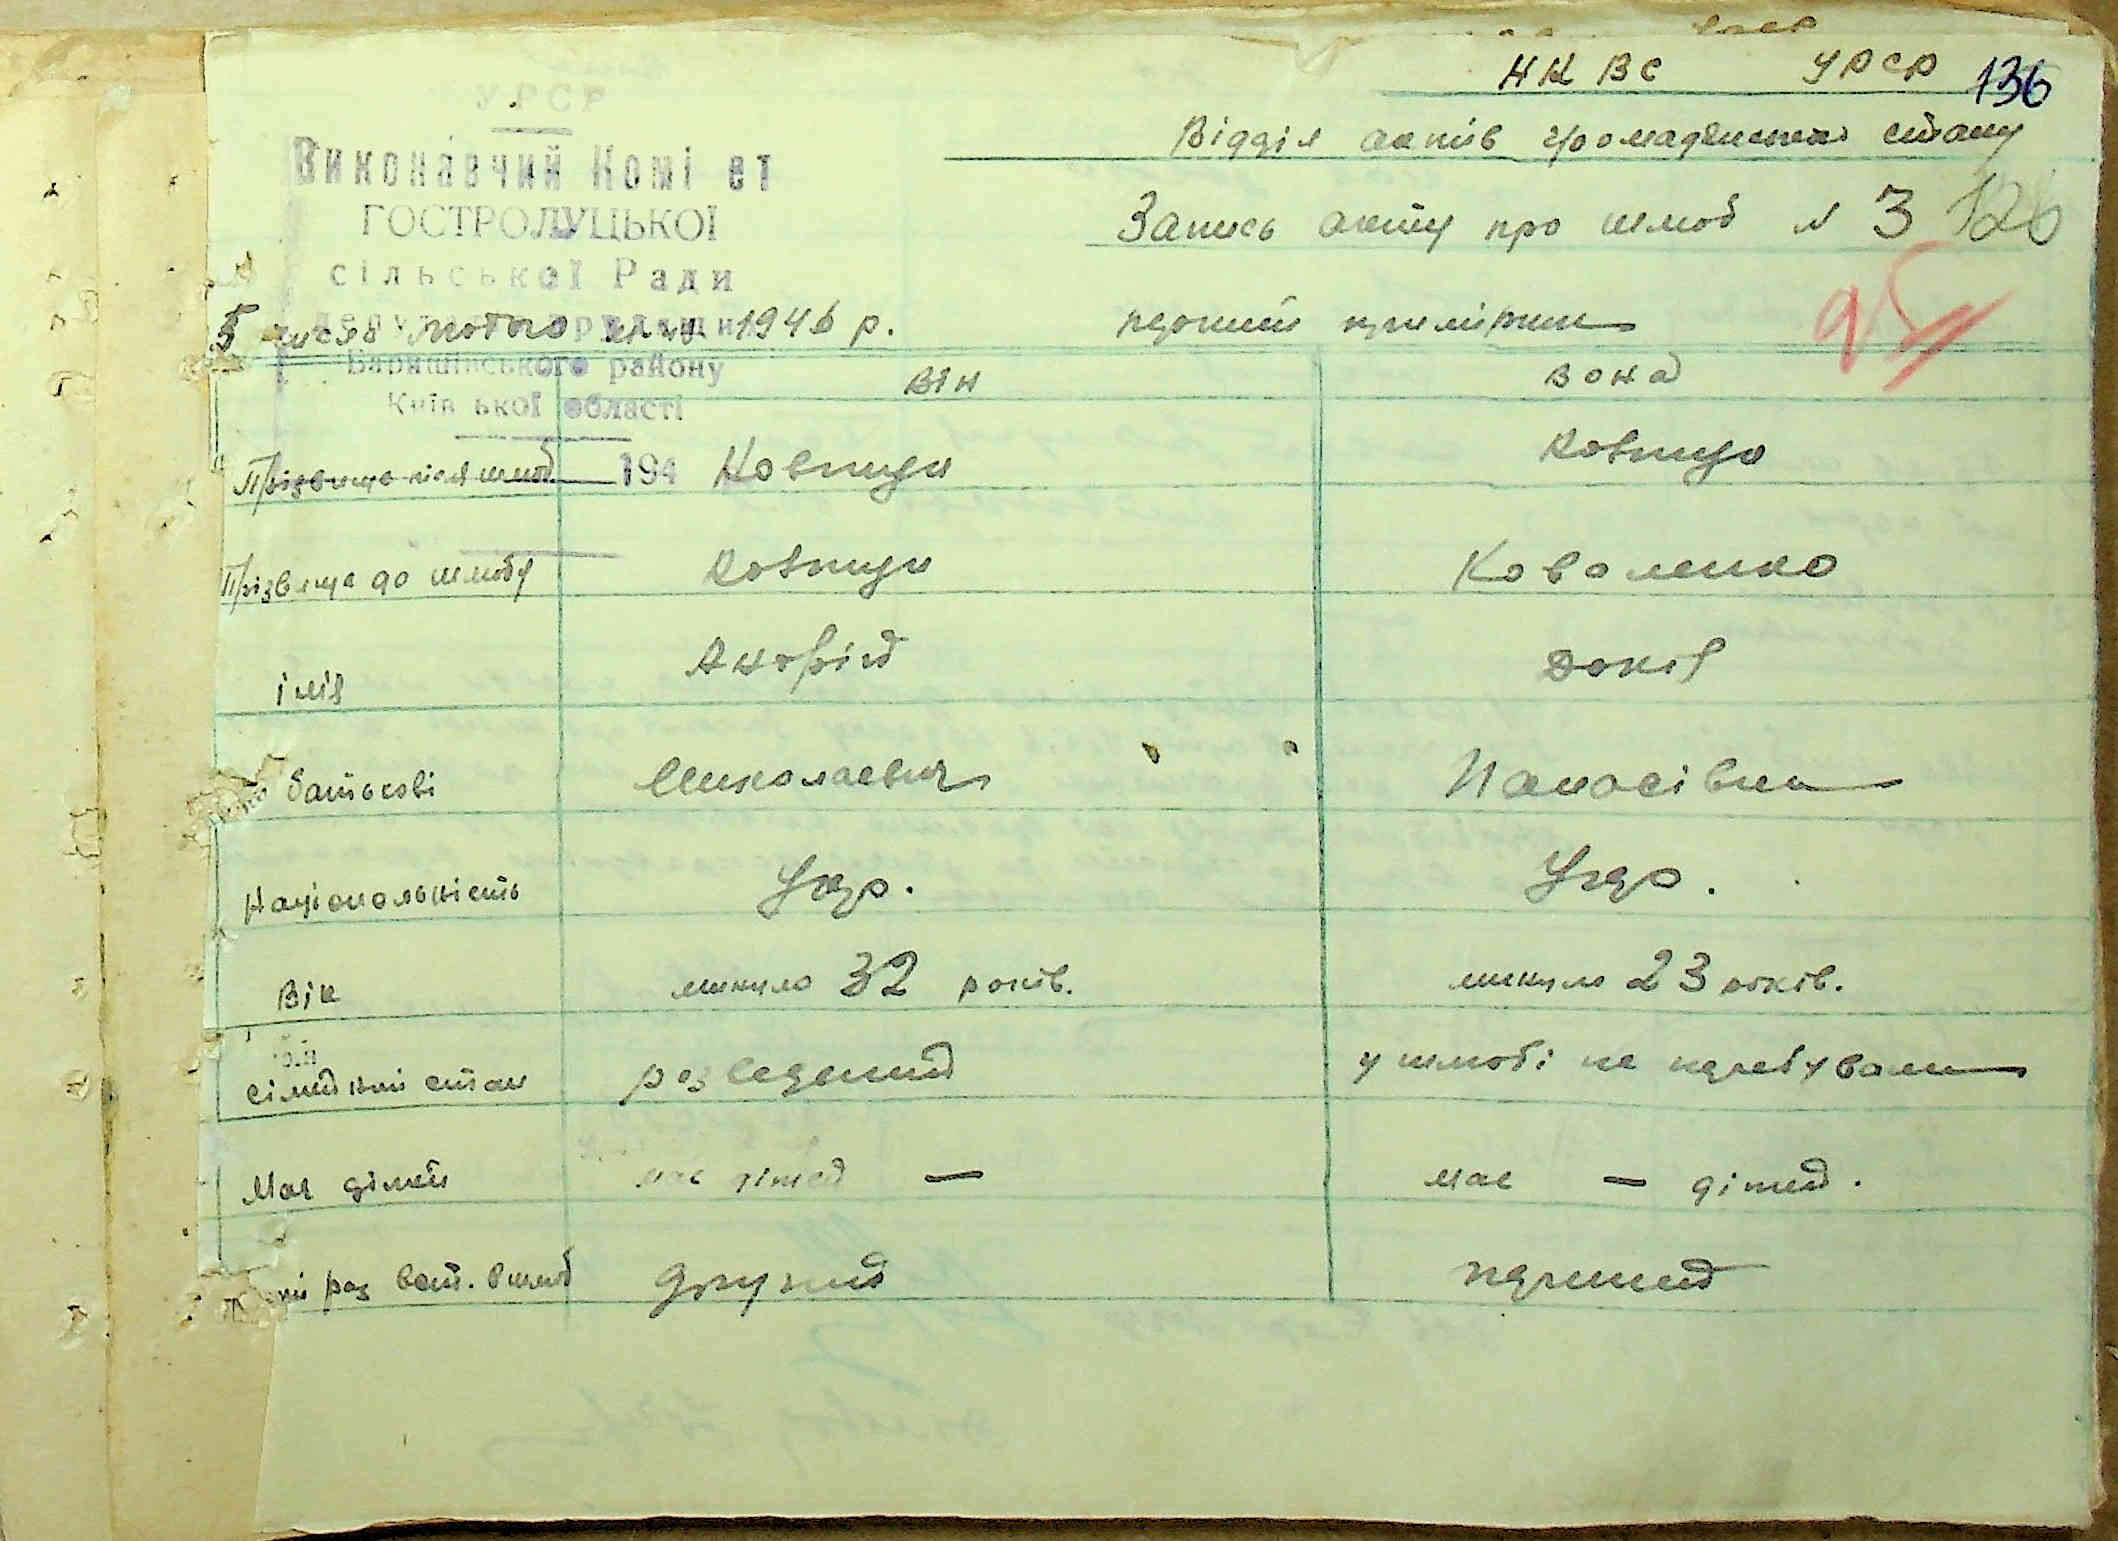 НКВС УРСР 136
Відділ актів громадянськ стану
Запись акту про шлюб N 3 126
УРСР
Виконавчий Комі ет
ГОСТРОЛУЦЬКОЇ
сільської Ради
Баришівського району
Київ ької області
194
5 лютого 1946 р. перший примірник 95
він вона
Прізвище після шлюб Ковтун Ковтун
Прізвище до шлюбу Ковтун Коваленко
імія Андрій
батькові Миколаевич Панасівна
Національність Укр. Укр.
Вік минуло 32 років. минуло 23 років.
сімейний стан розведений у шлюбі не перебувала
Має дітей має дітей — має — дітей.
раз вст. в шлюб другий перший